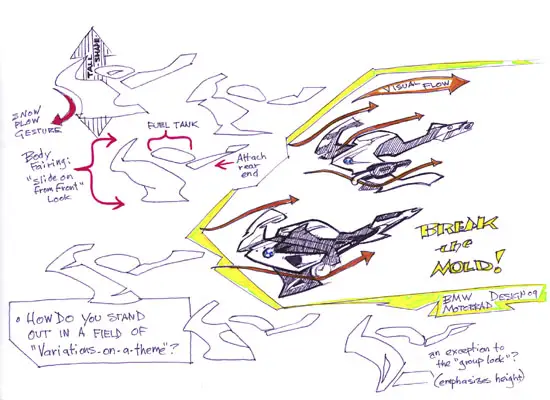 TALL
SHAPE
SNOW
PLOW
GESTURE
FUEL TANK
Body
Fairing:
"Slide on
From Front"
Look
Attach
rear
end
VISUAL FLOW
BREAK
the
MOLD!
BMW DESIGN 09
MOTORRAD
• HOW DO YOU STAND
OUT IN A FIELD OF
"Variations-on-a-theme"?
an exception to
the "group look"?
(emphasizes height)